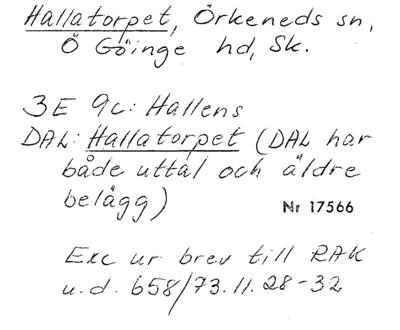 Hallatorpet, Örkeneds sn,
Ö Göinge hd, Sk.
3E 9c: Hallens
DAL: Hallatorpet (DAL har
både uttal och äldre
belägg) Nr 17566
Exc ur brev till RAK
u.d. 658/73.11.28-32